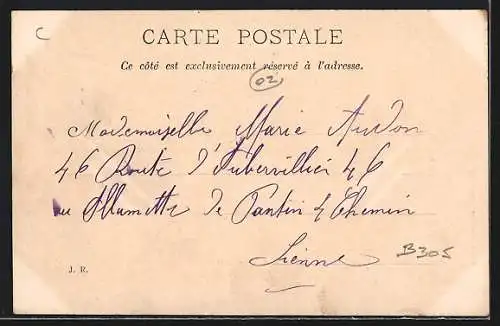 C
CARTE POSTALE
Ce côté est exclusivement réservé à l'adresse.
02
Mademoiselle Marie Audon
46 Route d'Aubervillier 46
au Allumette de Pantin 4 Chemin
Seine
B305
J. R.